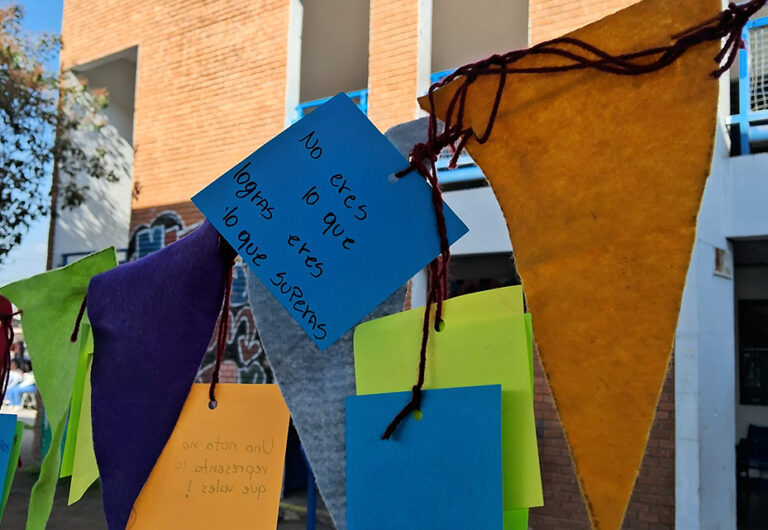 No eres
lo que
logras eres
lo que superas
Una nota no
representa lo
que vales!